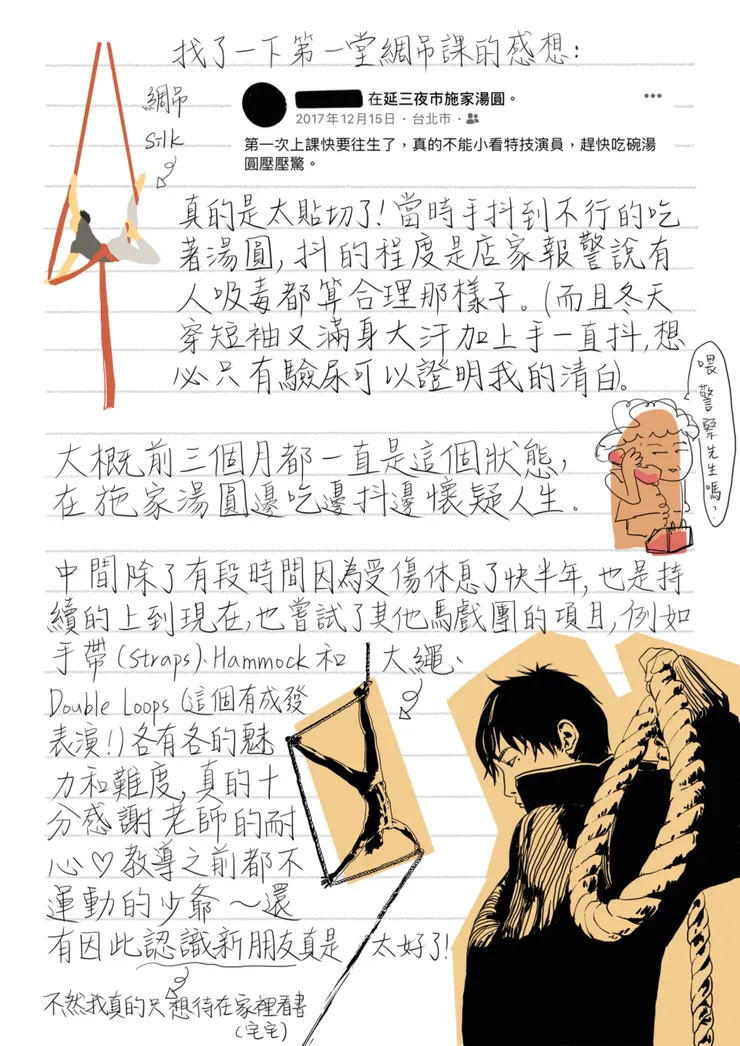 找了一下第一堂綢吊課的感想:
綢吊
Silk
在延三夜市施家湯圓。
2017年12月15日・台北市・
第一次上課快要往生了,真的不能小看特技演員,趕快吃碗湯
圓壓壓驚。
真的是太貼切了!當時手抖到不行的吃
著湯圓,抖的程度是店家報警說有
人吸毒都算合理那樣子。(而且冬天
穿短袖又滿身大汗加上手一直抖,想
必只有驗尿可以證明我的清白)。
喂警察先生嗎?
大概前三個月都一直是這個狀態,
在施家湯圓邊吃邊抖邊懷疑人生。
中間除了有段時間因為受傷休息了快半年,也是持
續的上到現在,也嘗試了其他馬戲團的項目,例如
手帶(straps)、Hammock和 大繩、
Double Loops(這個有成發
表演!)各有各的魅
力和難度,真的十
分感謝老師的耐
心♡教導之前都不
運動的少爺~還
有因此認識新朋友真是 太好了!
不然我真的只想待在家裡看書
(宅宅)